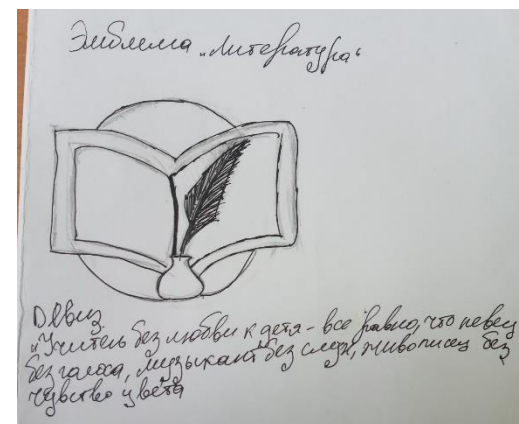 Эмблема „Литература“
Девиз
„Учитель без любви к детя - все равно, что певец
без голоса, музыкант без слуха, живописец без
чувство цвета